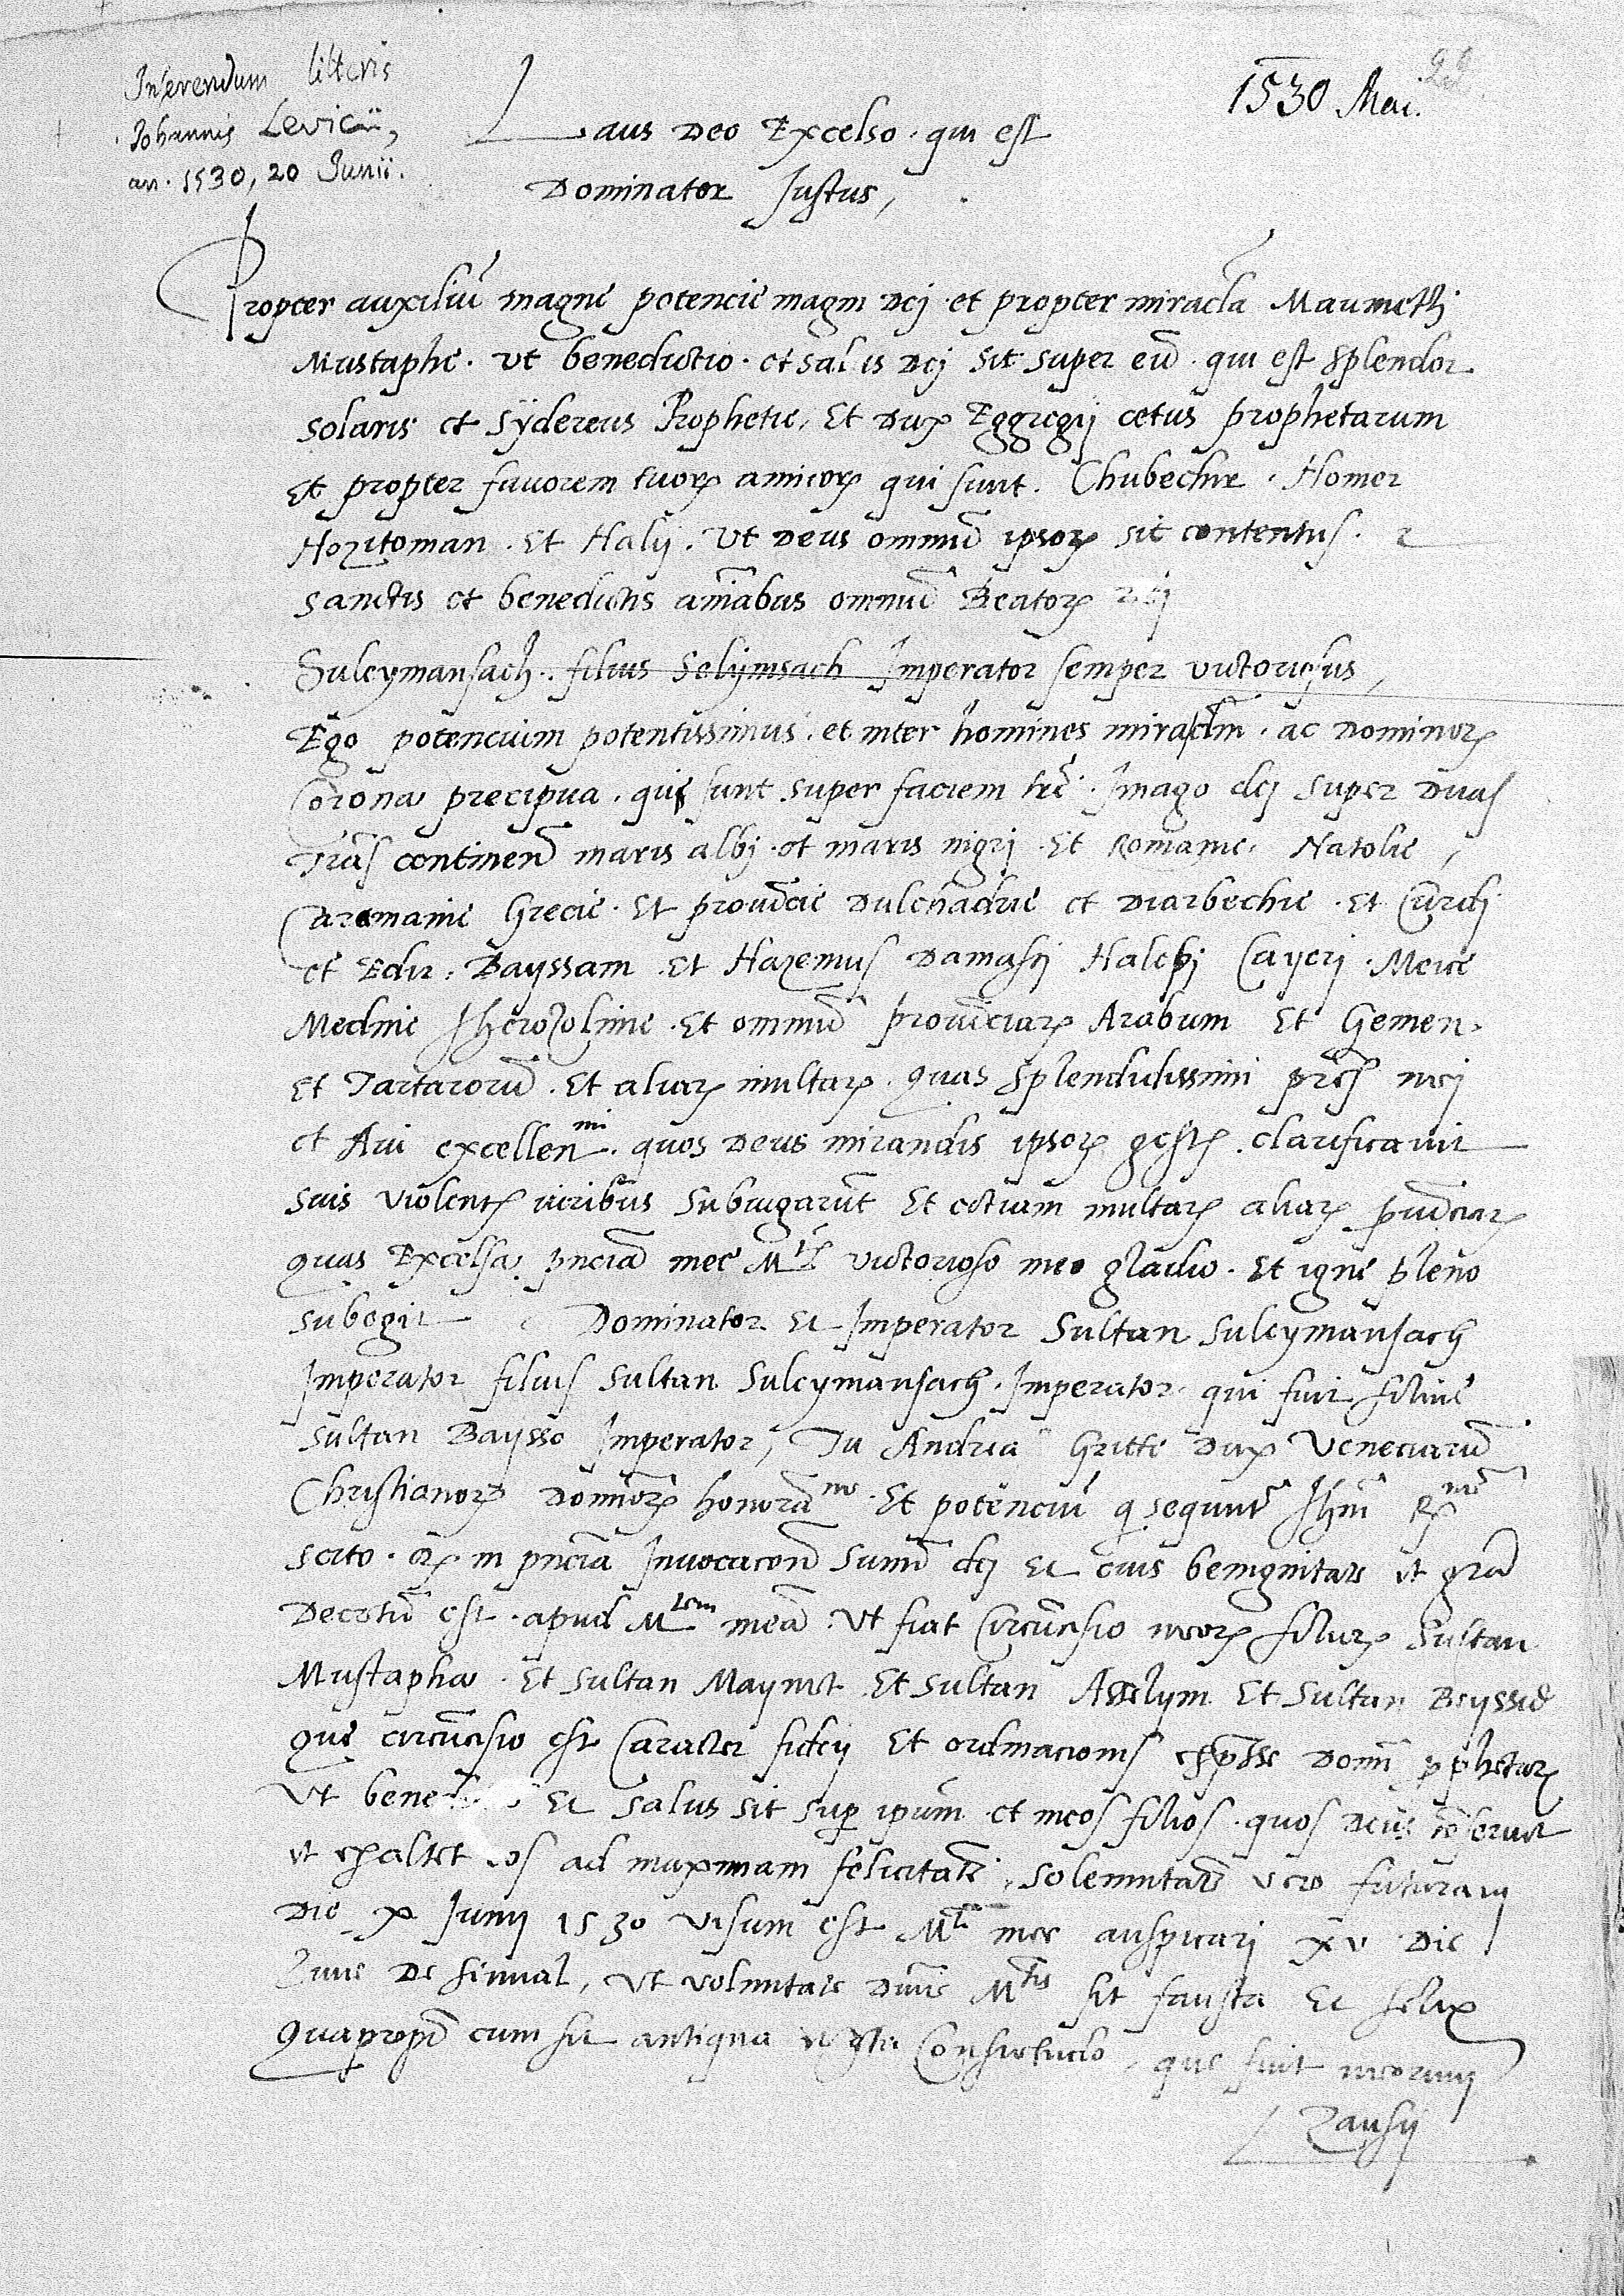 Inserendum litteris
Johannis Levicii,
an. 1530, 20 Junii.
1530 Mai.
Laus Deo Excelso. qui est
Dominator Justus,
Propter auxiliū magne potencie magni Dej et propter miracla Maumethi
Mustaphe. Ut benedictio. et salus Dej sit super eū. qui est splendor
solaris et sÿdereus Prophetie, Et Dux Eggregij cetus prophetarum
Et propter favorem suorꝝ amicorꝝ qui sunt. Chubechir. Homer
Hozitoman. Et Halij. Ut Deus omniū ipsorꝝ sit contentus.
sanctis et benedictis aīabus omniū Beatorꝝ Dej
Suleymansach. filius Selymsach Imperator semper victoriosus,
Ego potencium potentissimus. et inter homines miraclm̄. ac Dominorꝝ
Corona precipua. qui sunt super faciem tr̄e. Imago dej super duas
Tr̄as continen̄ maris albj. et maris nigrj. Et Romanie. Natolie,
Caramanie Grecie. Et provīcie Dulchadrie et Diarbechie. Et Curdj
et Edir. Bayssam. Et Hazemus Damasij Halepj Cayerj. Mece
Medine Iherozolime. Et omniū provīciarꝝ Arabum Et Gemen.
Et Tartarorū. Et aliarꝝ multarꝝ. quas splendidissimi pr̄es mej
et Avi excellenmi. quos Deus mirandis ipsorꝝ gestꝭ. clarificavit
suis violentꝭ viribus subiugarūt Et etiam multarꝝ aliarꝝ provīciarꝝ
quas Excelsa pn̄cia mee Mtꝭ victorioso meo gladio. Et igne pleno
subegit Dominator Et Imperator Sultan Suleymansach
Imperator filius Sultan Suleymansach. Imperator. qui fuit filius
Sultan Baysso Imperator, Tu Andrea Gritti Dux Veneciarū
Christianorꝝ Dominorꝝ honoran̄. Et potenciū q̄ sequntr̄ Ihm̄
scito. in pn̄cia Invocacon̄ sum̄i dej Et eius benignitate et gra
Decretū est. apud Mtem meā. Ut fiat Circūcisio meorꝝ filiorꝝ Sultan
Mustapha. Et Sultan Maymet Et Sultan Asselym Et Sultan Beyssid
que circūcisio est Caracter fidej Et ordinacionis Dom̄i ꝓphetarꝝ
Ut Et salus sit sup̄ ipsum et meos filios. quos deus cōservet
et exaltet eos ad maximam felicitatē, solemnitatē vero futuram
Die x Junij 1530 visum est Mti mee auspicarj xv die
Lune De sinval, Ut voluntate Divīe Mtis sit fausta Et felix
Quapropt̄ cum sit antiqua Consuetudo, que fuit meorum